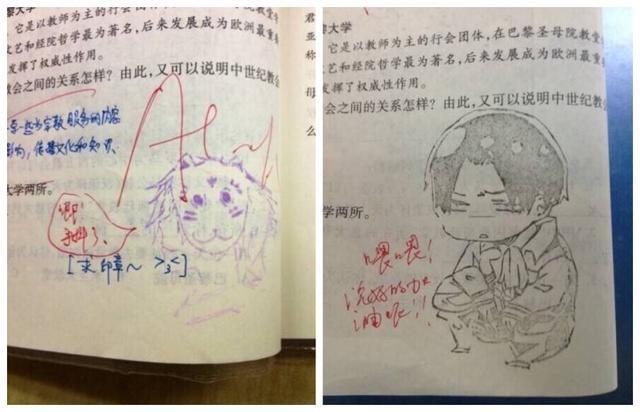 黎大学
它是以教师为主的行会团体，
文艺和经院哲学最为著名，后来发展成为欧洲最重
发挥了权威性作用。
教会之间的关系怎样？由此，又可以说明中世纪
服务的内容
传播文化和知识
大学两所。
[求印章～ >3<]
君
亚
称
母
么
大学
它是以教师为主的行会团体，在巴黎圣母院教堂
艺和经院哲学最为著名，后来发展成为欧洲最重
发挥了权威性作用。
会之间的关系怎样？由此，又可以说明中世纪教
学两所。
喂喂！
说好的加
油呢!!